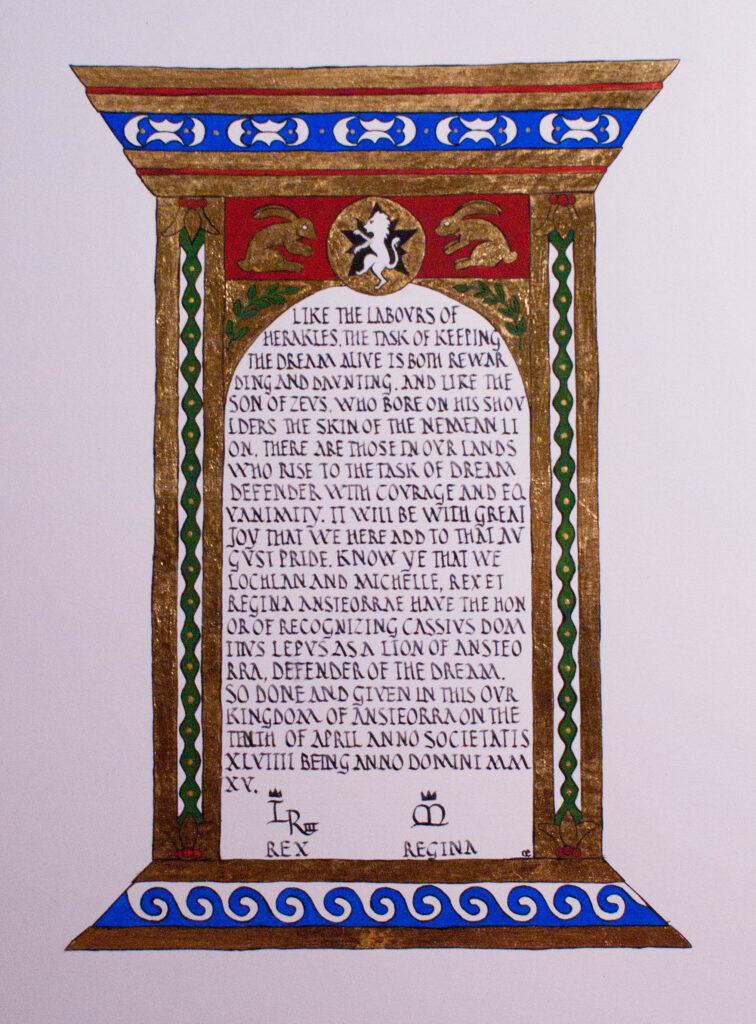 LIKE THE LABOVRS OF
HERAKLES, THE TASK OF KEEPING
THE DREAM ALIVE IS BOTH REWAR
DING AND DAVNTING. AND LIKE THE
SON OF ZEVS, WHO BORE ON HIS SHOV
LDERS THE SKIN OF THE NEMEAN LI
ON, THERE ARE THOSE IN OVR LANDS
WHO RISE TO THE TASK OF DREAM
DEFENDER WITH COVRAGE AND EQ
VANIMITY. IT WILL BE WITH GREAT
JOY THAT WE HERE ADD TO THAT AV
GVST PRIDE. KNOW YE THAT WE
LOCHLAN AND MICHELLE, REX ET
REGINA ANSTEORRAE HAVE THE HON
OR OF RECOGNIZING CASSIVS DOM
ITIVS LEPVS AS A LION OF ANSTEO
RRA, DEFENDER OF THE DREAM.
SO DONE AND GIVEN IN THIS OVR
KINGDOM OF ANSTEORRA ON THE
TENTH OF APRIL ANNO SOCIETATIS
XLVIIII BEING ANNO DOMINI MM
XV.
LR III M
REX REGINA